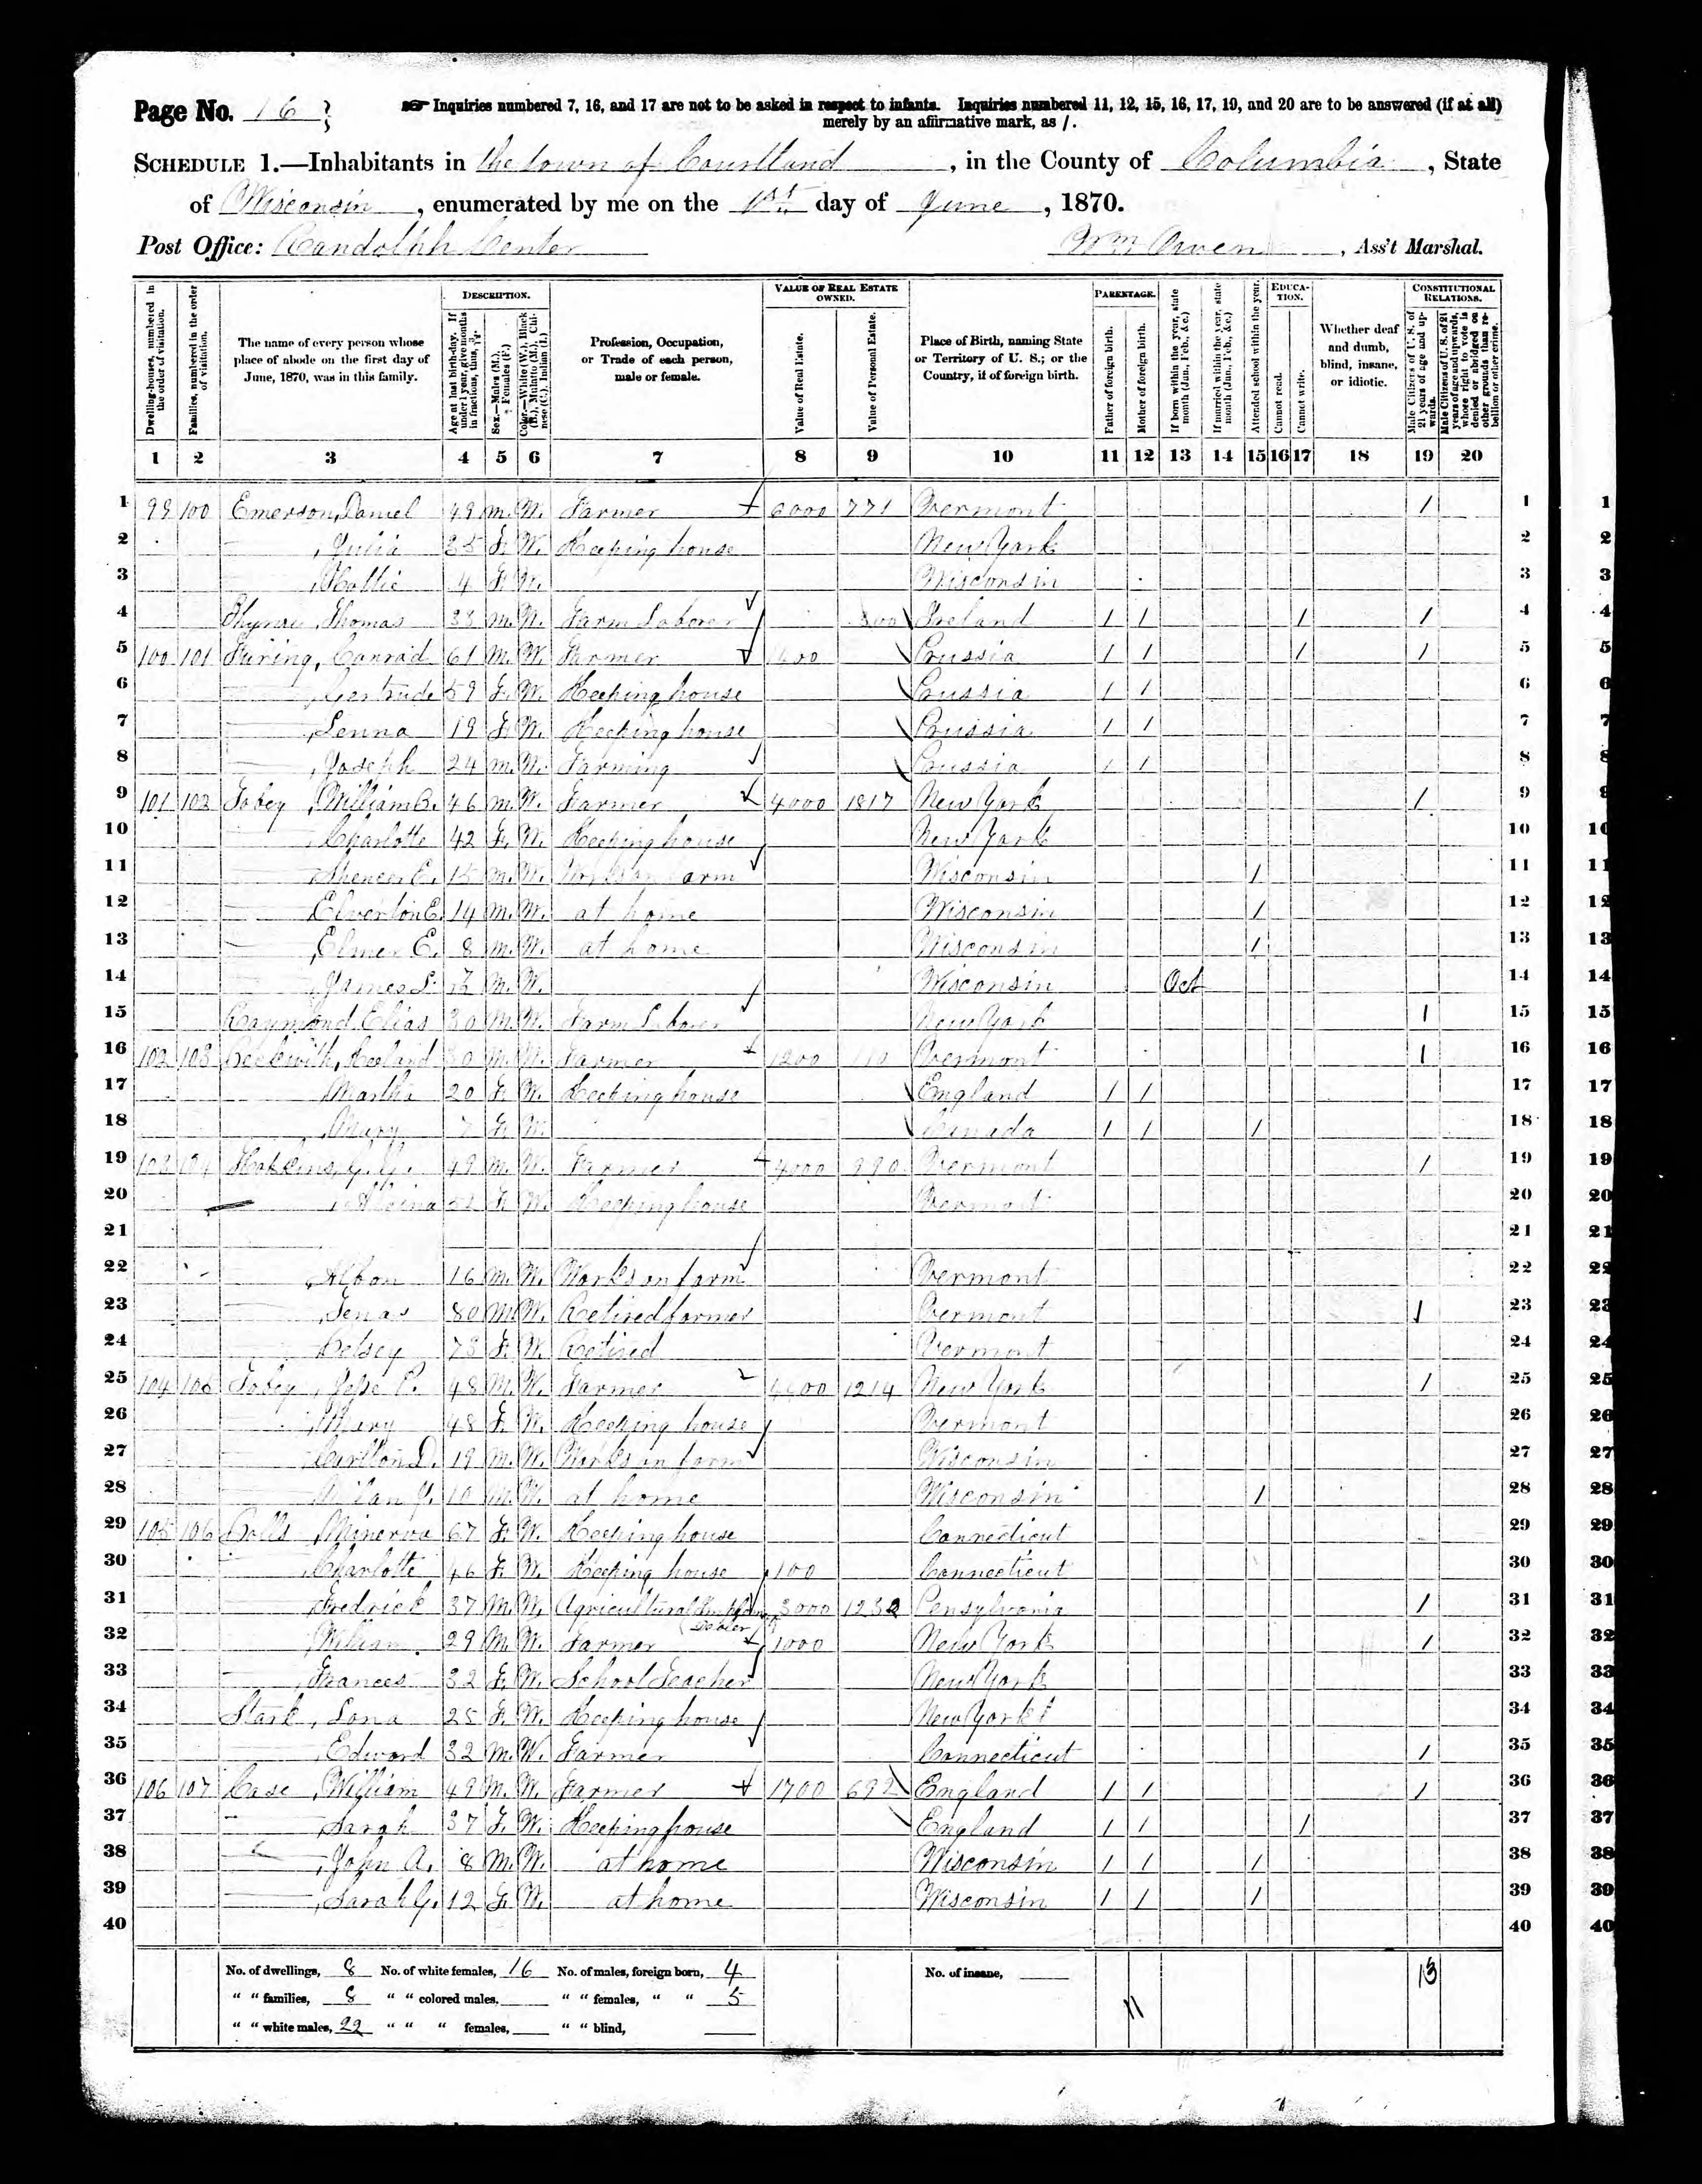 Page No. 16
Inquiries numbered 7, 16, and 17 are not to be asked in respect to infants. Inquiries numbered 11, 12, 15, 16, 17, 19, and 20 are to be answered (if at all)
merely by an affirmative mark, as /.
SCHEDULE 1.—Inhabitants in the town of Courtland, in the County of Columbia, State
of Wisconsin, enumerated by me on the 1st day of June, 1870.
Post Office: Randolph Center Wm. Owen, Ass't Marshal.
Dwelling-houses, numbered in the order of visitation.
Families, numbered in the order of visitation.
The name of every person whose place of abode on the first day of June, 1870, was in this family.
DESCRIPTION.
Age at last birth-day. If under 1 year, give months in fractions, thus, 3/12
Sex.—Males (M.), Females (F.)
Color.—White (W.), Black (B.), Mulatto (M.), Chinese (C.), Indian (I.)
Profession, Occupation, or Trade of each person, male or female.
VALUE OF REAL ESTATE OWNED.
Value of Real Estate.
Value of Personal Estate.
Place of Birth, naming State or Territory of U. S.; or the Country, if of foreign birth.
PARENTAGE.
Father of foreign birth.
Mother of foreign birth.
If born within the year, state month (Jan., Feb., &c.)
If married within the year, state month (Jan., Feb., &c.)
Attended school within the year.
EDUCATION.
Cannot read.
Cannot write.
Whether deaf and dumb, blind, insane, or idiotic.
CONSTITUTIONAL RELATIONS.
Male Citizens of U. S. of 21 years of age and upwards.
Male Citizens of U. S. of 21 years of age and upwards, whose right to vote is denied or abridged on other grounds than rebellion or other crime.
1 2 3 4 5 6 7 8 9 10 11 12 13 14 15 16 17 18 19 20
1 99 100 Emerson, Daniel 49 M. W. Farmer 6000 771 Vermont / 1 1
2 , Julia 35 F. W. Keeping house New York 2 2
3 , Hattie 4 F. W. Wisconsin 3 3
4 Thomas 33 M. W. Farm Laborer 300 Ireland / / / / 4 4
5 100 101 Furing, Conrad 61 M. W. Farmer Prussia / / / / 5 5
6 , Gertrude 59 F. W. Keeping house Prussia / / 6 6
7 , Lenna 19 F. W. Keeping house Prussia / / 7 7
8 , Joseph 24 M. W. Farming Prussia / / 8 8
9 101 102 Tobey, William C. 46 M. W. Farmer 4000 1817 New York / 9 9
10 , Charlotte 42 F. W. Keeping house New York 10 10
11 , Spencer E. 15 M. W. Works on farm Wisconsin / 11 11
12 , Elverton E. 14 M. W. at home Wisconsin / 12 12
13 , Elmer E. 8 M. W. at home Wisconsin / 13 13
14 , James L. M. W. Wisconsin Oct 14 14
15 Raymond, Elias 30 M. W. Farm Laborer New York / 15 15
16 102 103 Beckwith, 30 M. W. Farmer 1200 Vermont / 16 16
17 , Martha 20 F. W. Keeping house England / / 17 17
18 , Mary 7 F. W. Canada / / / 18 18
19 103 104 49 M. W. Farmer 4000 990 Vermont / 19 19
20 F. W. Keeping house Vermont 20 20
21 21 21
22 , Albon 16 M. W. Works on farm Vermont 22 22
23 , Zenas 80 M. W. Retired farmer Vermont / 23 23
24 , Betsey 73 F. W. Retired Vermont 24 24
25 104 105 Tobey, Jesse P. 48 M. W. Farmer 1214 New York / 25 25
26 , Mary 48 F. W. Keeping house Vermont 26 26
27 , Carlton D. 19 M. W. Works on farm Wisconsin 27 27
28 , Milan J. 10 M. W. at home Wisconsin / 28 28
29 105 106 Minerva 67 F. W. Keeping house Connecticut 29 29
30 , Charlotte 46 F. W. Keeping house 100 Connecticut 30 30
31 , Fredrick 37 M. W. Agricultural Dealer 3000 1232 Pensylvania / 31 31
32 , William 29 M. W. Farmer 1000 New York / 32 32
33 , Frances 32 F. W. School Teacher New York 33 33
34 Stark, Lona 25 F. W. Keeping house New York 34 34
35 , Edward 32 M. W. Farmer Connecticut / 35 35
36 106 107 Case, William 49 M. W. Farmer 1700 692 England / / / 36 36
37 , Sarah 37 F. W. Keeping house England / / / 37 37
38 , John A. 8 M. W. at home Wisconsin / / / 38 38
39 , Sarah J. 12 F. W. at home Wisconsin / / / 39 39
40 40 40
No. of dwellings, 8 No. of white females, 16 No. of males, foreign born, 4 No. of insane, 13
" " families, 8 " " colored males, " " females, " " 5 11
" " white males, 22 " " " females, " " blind,